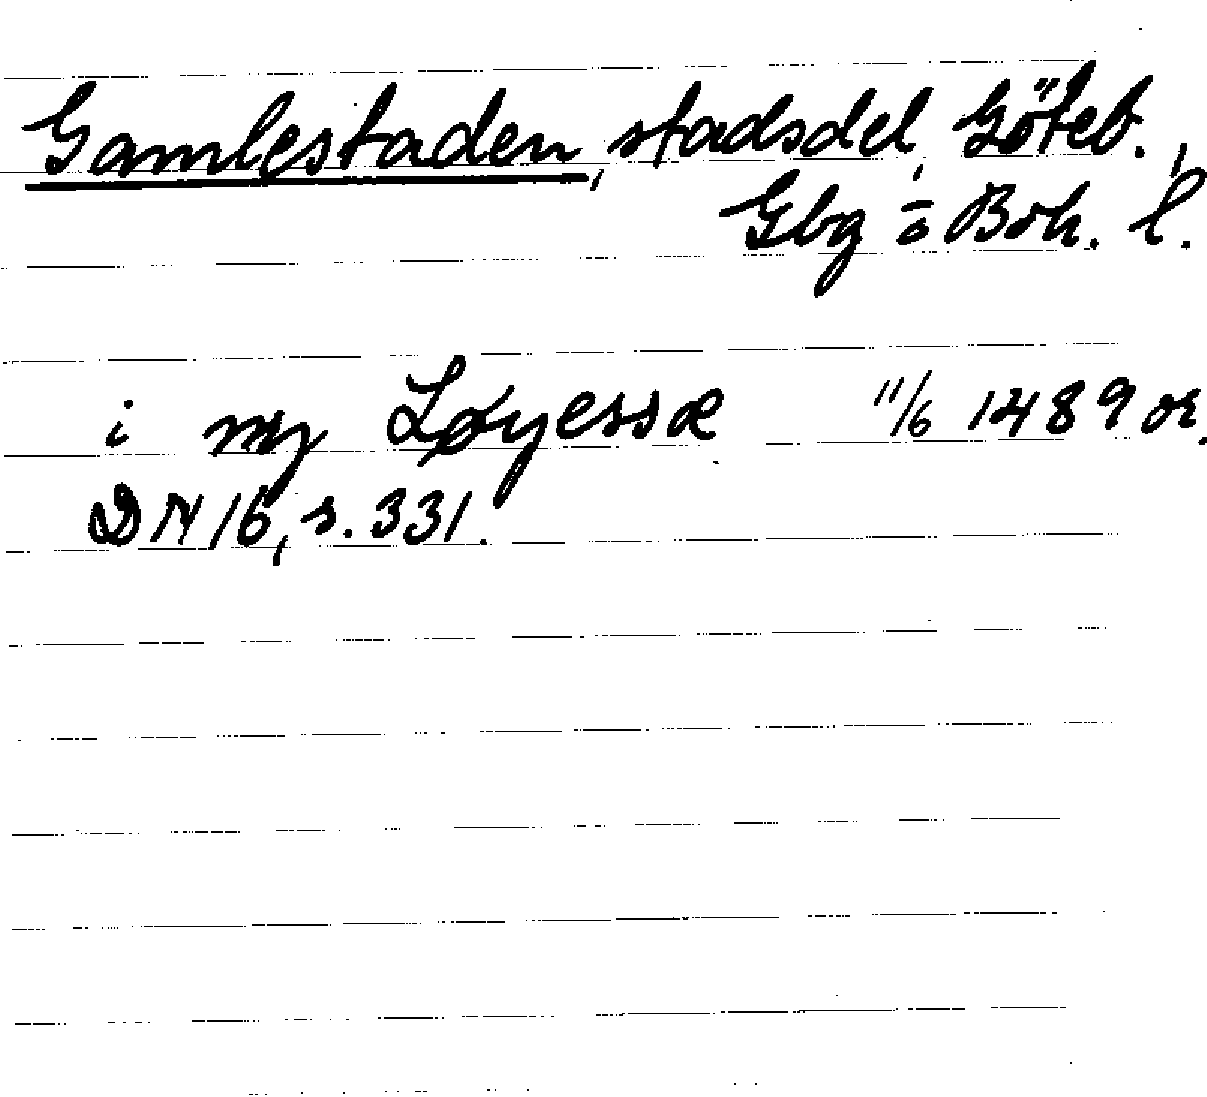 Gamlestaden, stadsdel, Göteb.,
Gbg o Boh. l.
i ny Løyessæ 11/6 1489 or.
DN 16, s. 331.